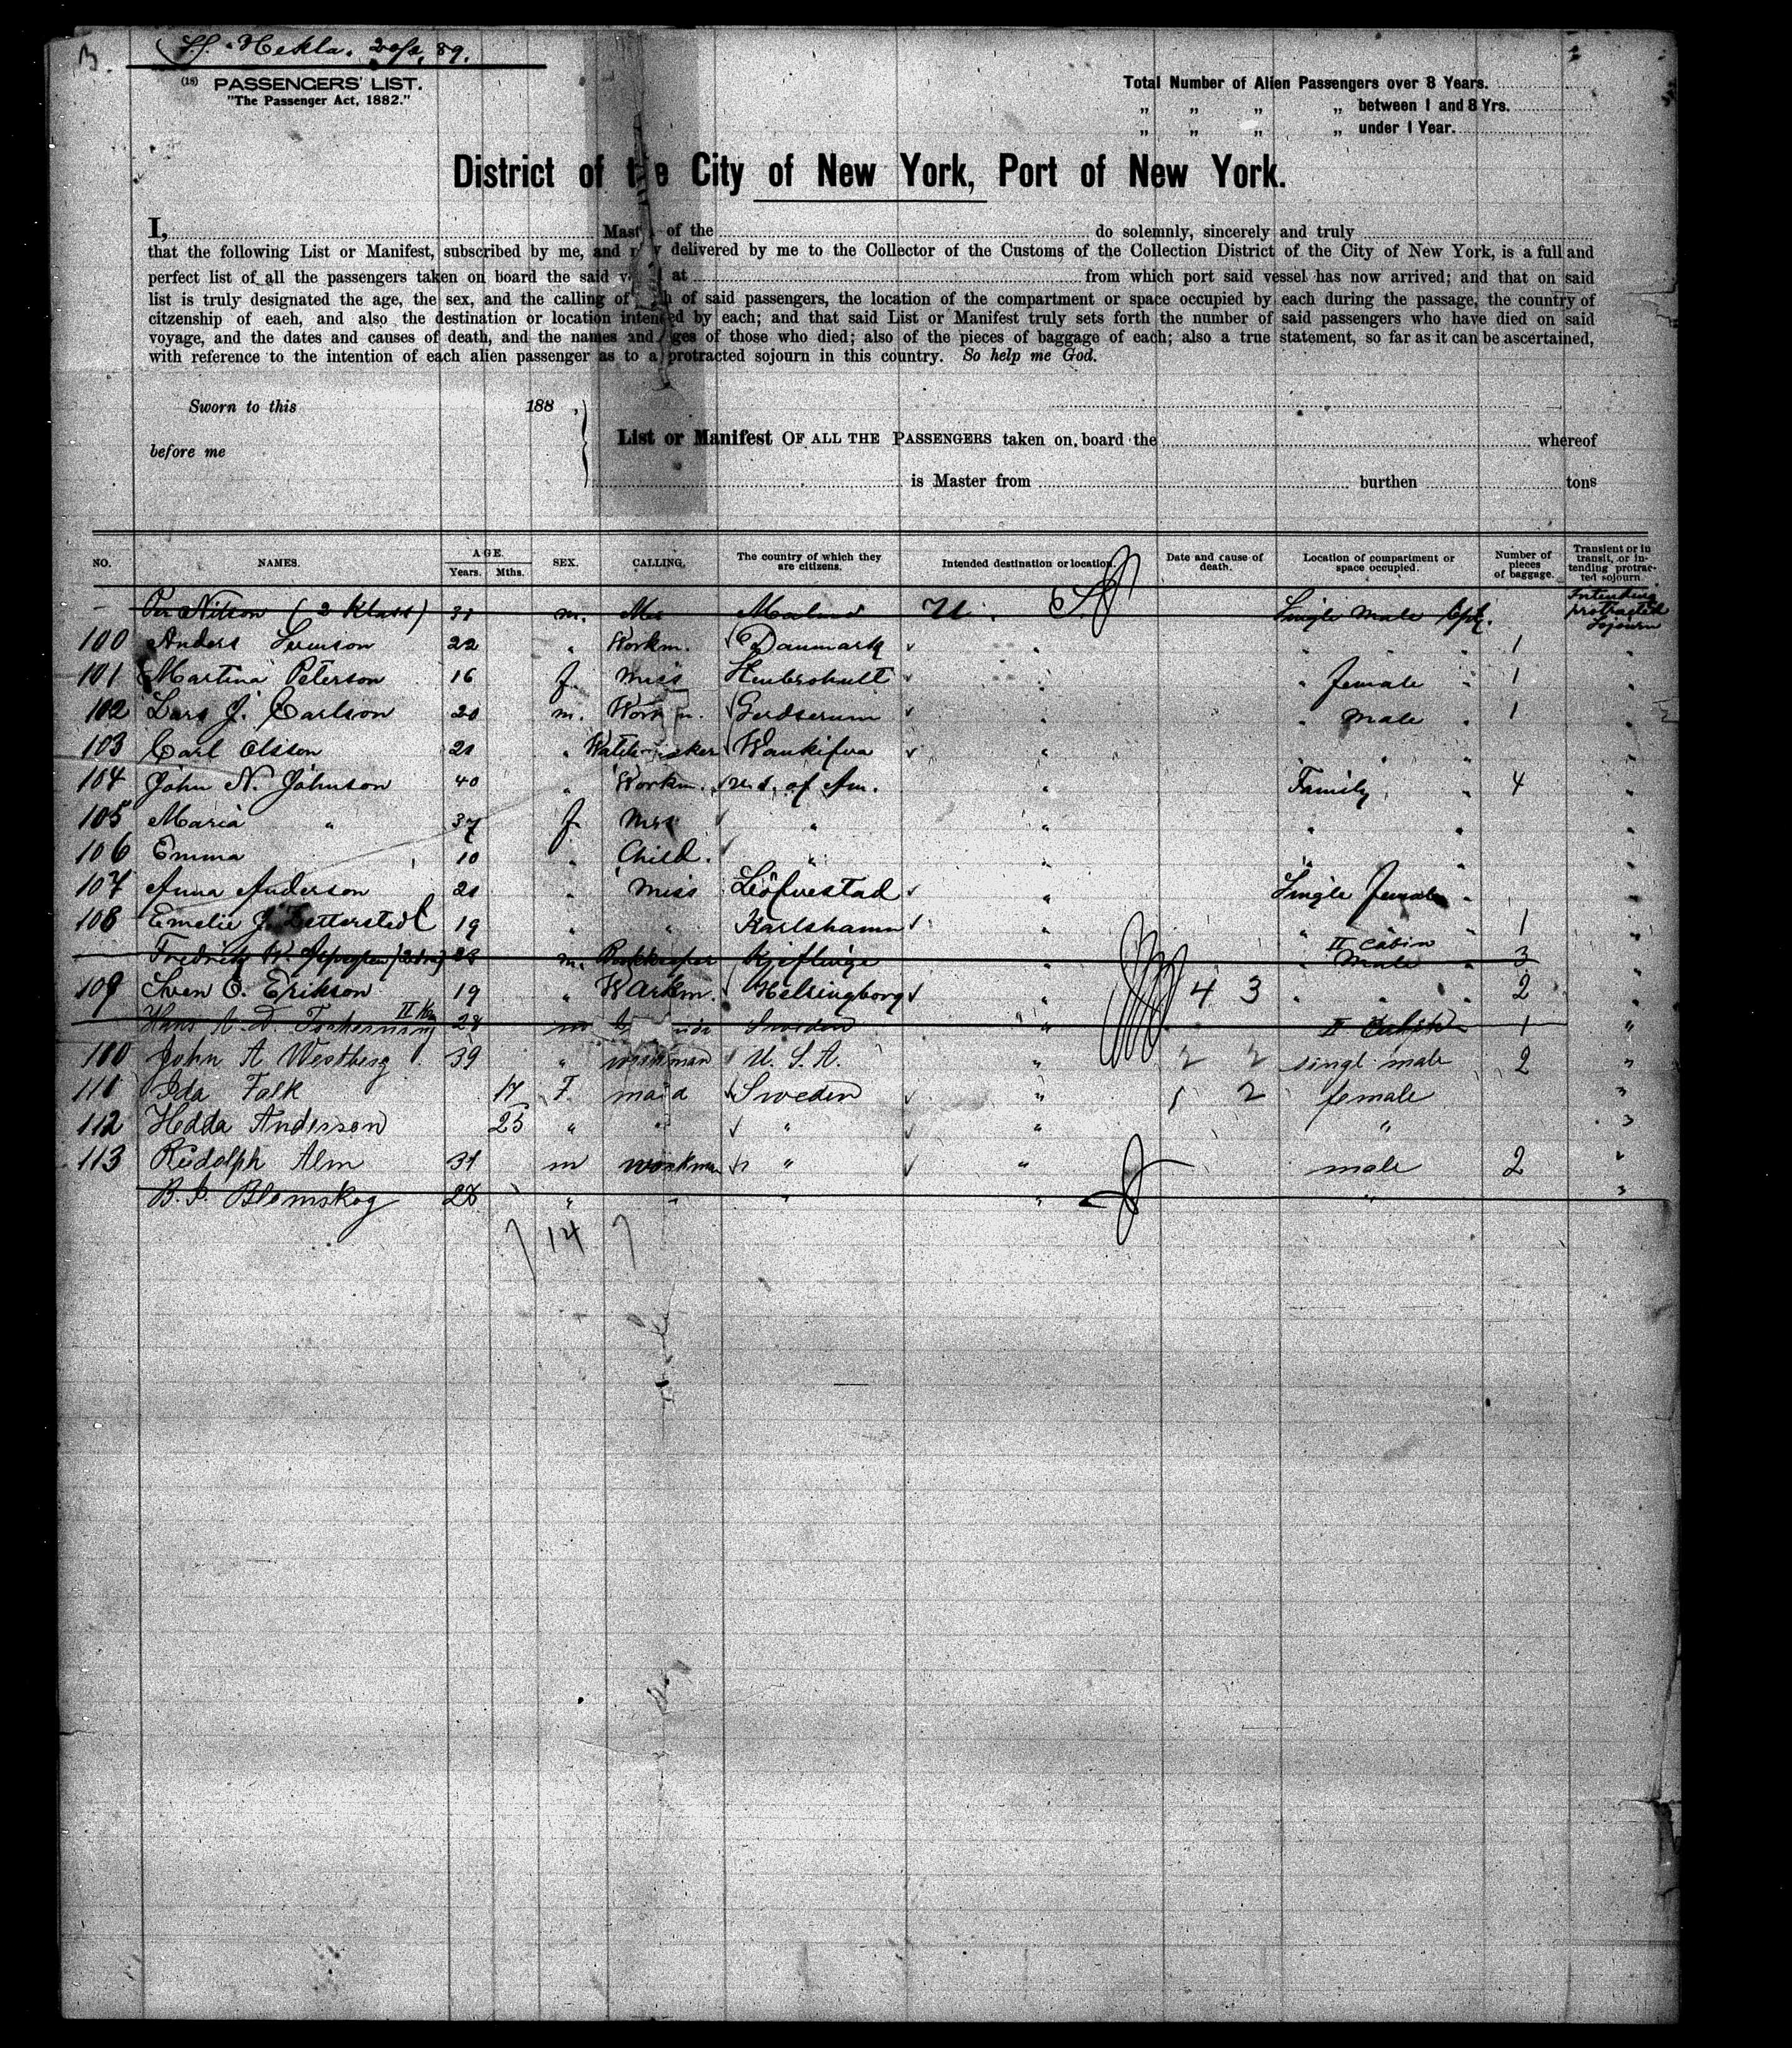 B.
S.S. "Hekla" 20/2 89.
(18) PASSENGERS' LIST.
"The Passenger Act, 1882."
Total Number of Alien Passengers over 8 Years.
„ „ „ „ between 1 and 8 Yrs.
„ „ „ „ under 1 Year.
District of the City of New York, Port of New York.
I, Master of the do solemnly, sincerely and truly
that the following List or Manifest, subscribed by me, and now delivered by me to the Collector of the Customs of the Collection District of the City of New York, is a full and
perfect list of all the passengers taken on board the said vessel at from which port said vessel has now arrived; and that on said
list is truly designated the age, the sex, and the calling of each of said passengers, the location of the compartment or space occupied by each during the passage, the country of
citzenship of eaeh, and also the destination or location intended by each; and that said List or Manifest truly sets forth the number of said passengers who have died on said
voyage, and the dates and causes of death, and the names and ages of those who died; also of the pieces of baggage of each; also a true statement, so far as it can be ascertained,
with reference to the intention of each alien passenger as to a protracted sojourn in this country. So help me God.
Sworn to this 188 ,
List or Manifest OF ALL THE PASSENGERS taken on board the whereof
before me
is Master from burthen tons
NO. NAMES. AGE. Years. Mths. SEX. CALLING. The country of which they are citizens. Intended destination or location. Date and cause of death. Location of compartment or space occupied. Number of pieces of baggage. Transient or in transit, or intending protracted sojourn
Per Nilson (2 Klass) 31 m. Malmö U. S. Single Male Cpt. Intending protracted Sojourn
100 Anders Svenson 22 " Workm. Danmark " " " 1 "
101 Martina Peterson 16 f. Miss " " female " 1 "
102 Lars J. Carlson 20 m. Workm. Gerdserum " " Male " 1 "
103 Carl Olsson 21 " Watchmaker " " " "
104 John N. Johnson 40 " Workm. U.S. of Am. " Family " 4 "
105 Maria " 37 f. Mrs " " " " "
106 Emma 10 " Child. " " " " "
107 Anna Anderson 21 " Miss Löfvestad " Single female " "
108 Emelie J. Zetterstedt 19 " " Karlshamn " " " 1 "
Fredrik W. 28 m. Bookkeeper Kjeflinge " " II Cabin Male " 3
109 Sven O. Erikson 19 " Workm. Helsingborg " 4 3 " " 2 "
Hans A. D. II Kl 28 m Sweden " II Cabin 1 "
110 John A Westberg 39 " workman U. S. A. " 2 2 singl male 2 "
111 Ida Falk 17 F. maid Sweden " 1 2 female "
112 Hedda Anderson 25 " " " " " "
113 Rudolph Alm 31 m workman " " male 2 "
B. P. Blomskog 28 " " " " " "
7 14 7